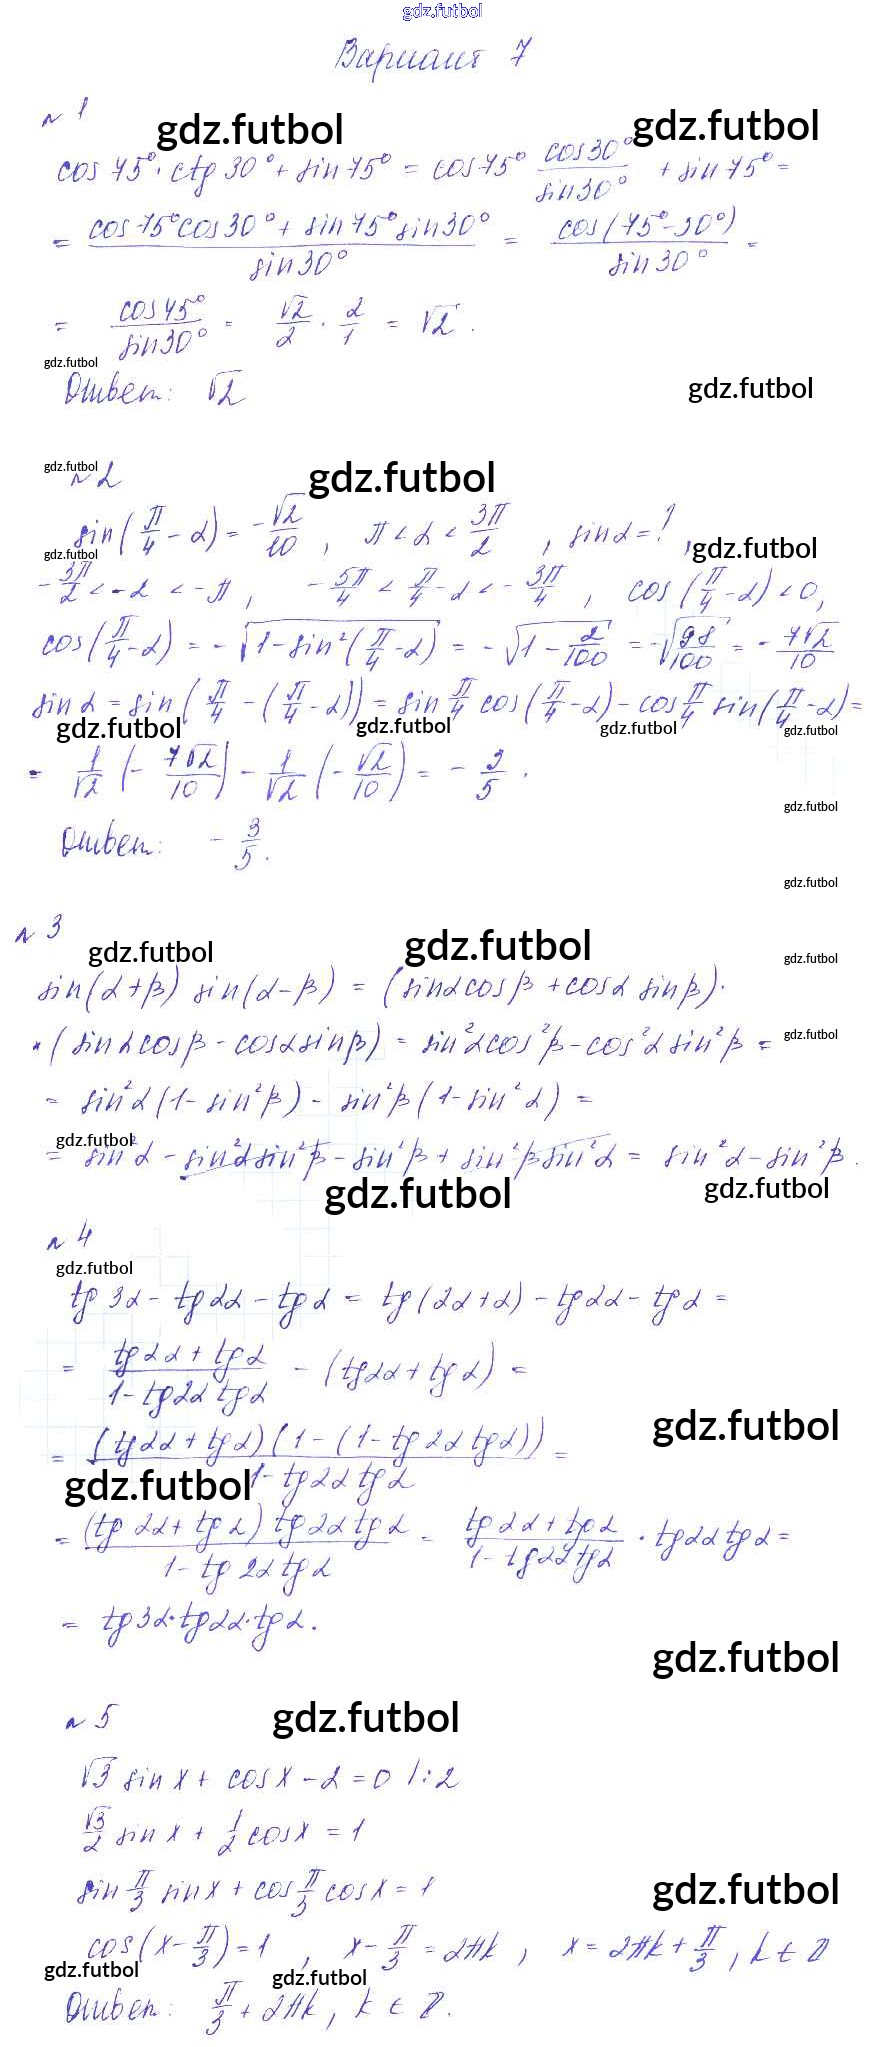 gdz.futbol
Вариант 7
№ 1
gdz.futbol gdz.futbol
cos 75° · ctg 30° + sin 75° = cos 75° cos30°/sin30° + sin 75° =
= (cos 75° cos 30° + sin 75° sin 30°)/sin 30° = cos(75°-30°)/sin 30° =
= cos 45°/sin 30° = √2/2 · 2/1 = √2.
gdz.futbol
Ответ: √2
gdz.futbol
gdz.futbol gdz.futbol
№ 2
sin(π/4 - α) = -√2/10, π < α < 3π/2, sin α = ?,
gdz.futbol gdz.futbol
-3π/2 < -α < -π, -5π/4 < π/4 - α < -3π/4, cos(π/4 - α) < 0,
cos(π/4 - α) = -√(1 - sin²(π/4 - α)) = -√(1 - 2/100) = -√(98/100) = -7√2/10
sin α = sin(π/4 - (π/4 - α)) = sin π/4 cos(π/4 - α) - cos π/4 sin(π/4 - α) =
gdz.futbol gdz.futbol gdz.futbol gdz.futbol
= 1/√2 (-7√2/10) - 1/√2 (-√2/10) = -3/5.
gdz.futbol
Ответ: -3/5.
gdz.futbol
№ 3
gdz.futbol gdz.futbol gdz.futbol
sin(α+β) sin(α-β) = (sinα cosβ + cosα sinβ) ·
· (sinα cosβ - cosα sinβ) = sin²α cos²β - cos²α sin²β =
gdz.futbol
= sin²α (1 - sin²β) - sin²β (1 - sin²α) =
gdz.futbol
= sin²α - sin²α sin²β - sin²β + sin²β sin²α = sin²α - sin²β.
gdz.futbol gdz.futbol
№ 4
gdz.futbol
tg 3α - tg 2α - tg α = tg(2α+α) - tg 2α - tg α =
= (tg 2α + tg α)/(1 - tg 2α tg α) - (tg 2α + tg α) =
gdz.futbol
= (tg 2α + tg α)(1 - (1 - tg 2α tg α))/(1 - tg 2α tg α) =
gdz.futbol
= (tg 2α + tg α) tg 2α tg α/(1 - tg 2α tg α) = (tg 2α + tg α)/(1 - tg 2α tg α) · tg 2α tg α =
= tg 3α · tg 2α · tg α.
gdz.futbol
№ 5
gdz.futbol
√3 sin x + cos x - 2 = 0 | : 2
√3/2 sin x + 1/2 cos x = 1
sin π/3 sin x + cos π/3 cos x = 1
gdz.futbol
cos(x - π/3) = 1, x - π/3 = 2πk, x = 2πk + π/3, k ∈ Z
gdz.futbol gdz.futbol
Ответ: π/3 + 2πk, k ∈ Z.